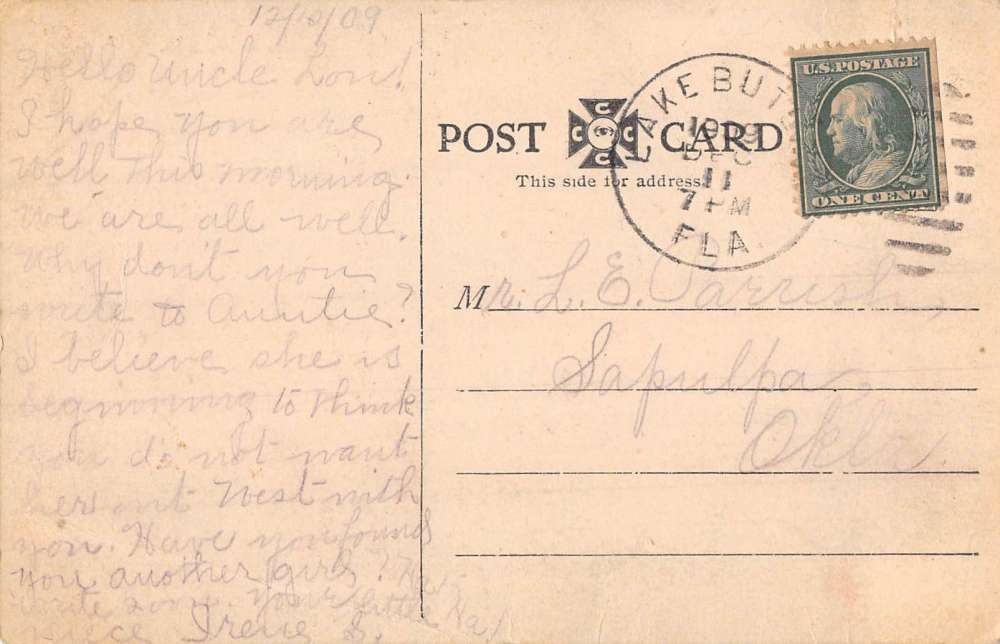 12/12/09
Hello Uncle Lon!
I hope you are
well this morning.
We are all well.
Why don't you
write to Auntie?
I believe she is
beginning to think
you do not want
her out West with
you. Have you found
you another girl?
write soon. Your little
niece Irene S.
POST CARD
This side for address.
LAKE BUT
1909
DEC
11
7 PM
FLA.
U.S. POSTAGE
ONE CENT
C C C C
Mr. L. E. Parrish,
Sapulpa,
Okla.